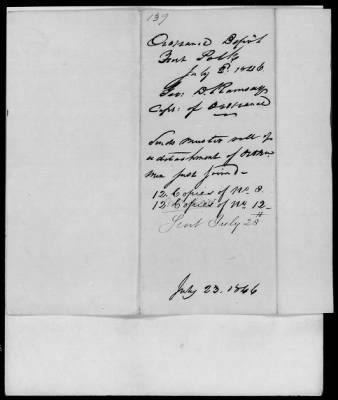 139
Ordnance Depôt
Fort Polk
July 2d. 1846
Geo. D. Ramsay
Capt. of Ordnance
Sends muster roll of
a detachment of
men just joined—
12. Copies of No. 8.
12 Copies of No. 12—
Sent July 28th
July 23. 1846